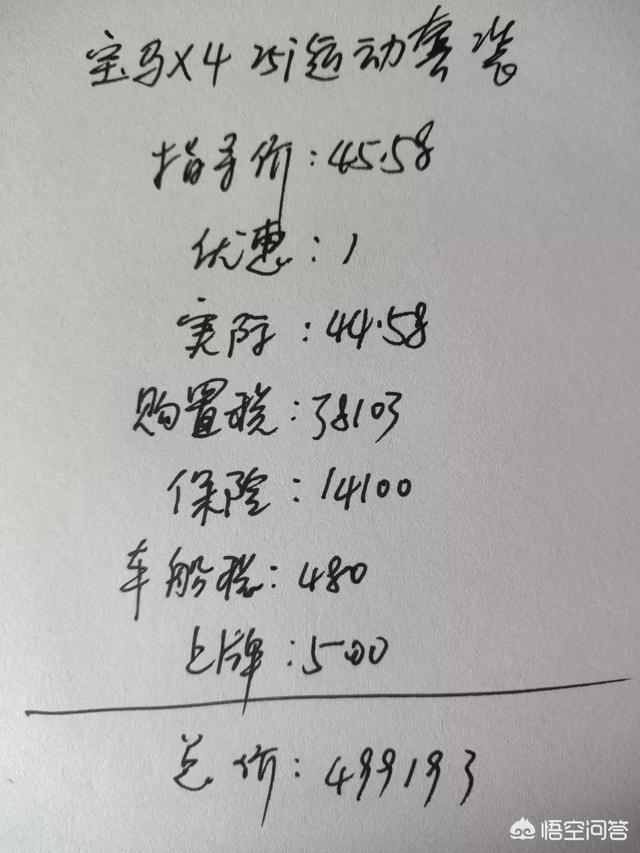 宝马X4 25i运动套装
指导价:45.58
优惠:1
实际:44.58
购置税:38103
保险:14100
车船税:480
上牌:500
总价:499193
悟空问答